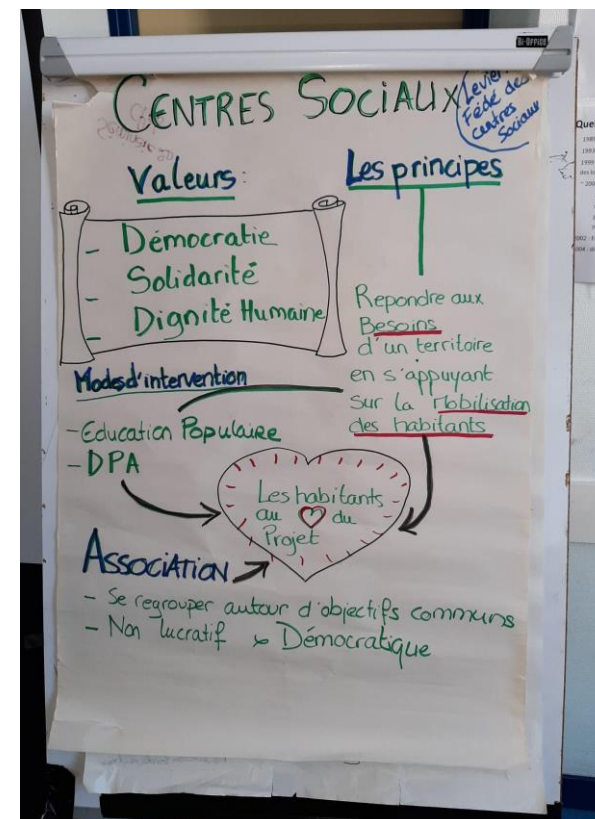 Bi-Office
CENTRES SOCIAUX
Levier:
Fédé des
Centres
Sociaux
Valeurs:
- Démocratie
- Solidarité
- Dignité Humaine
Les principes
Repondre aux
Besoins
d'un territoire
en s'appuyant
sur la Mobilisation
des habitants
Modes d'intervention
- Education Populaire
- DPA
Les habitants
au du
Projet
ASSOCIATION
- Se regrouper autour d'objectifs communs
- Non lucratif Démocratique